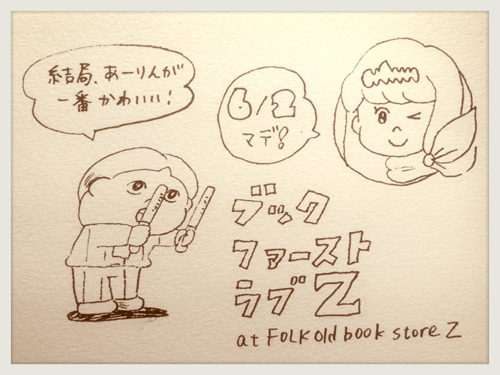 結局、あーりんが
一番かわいい!
6/2
マデ!
ブック
ファースト
ラブZ
at FOLK old book store Z